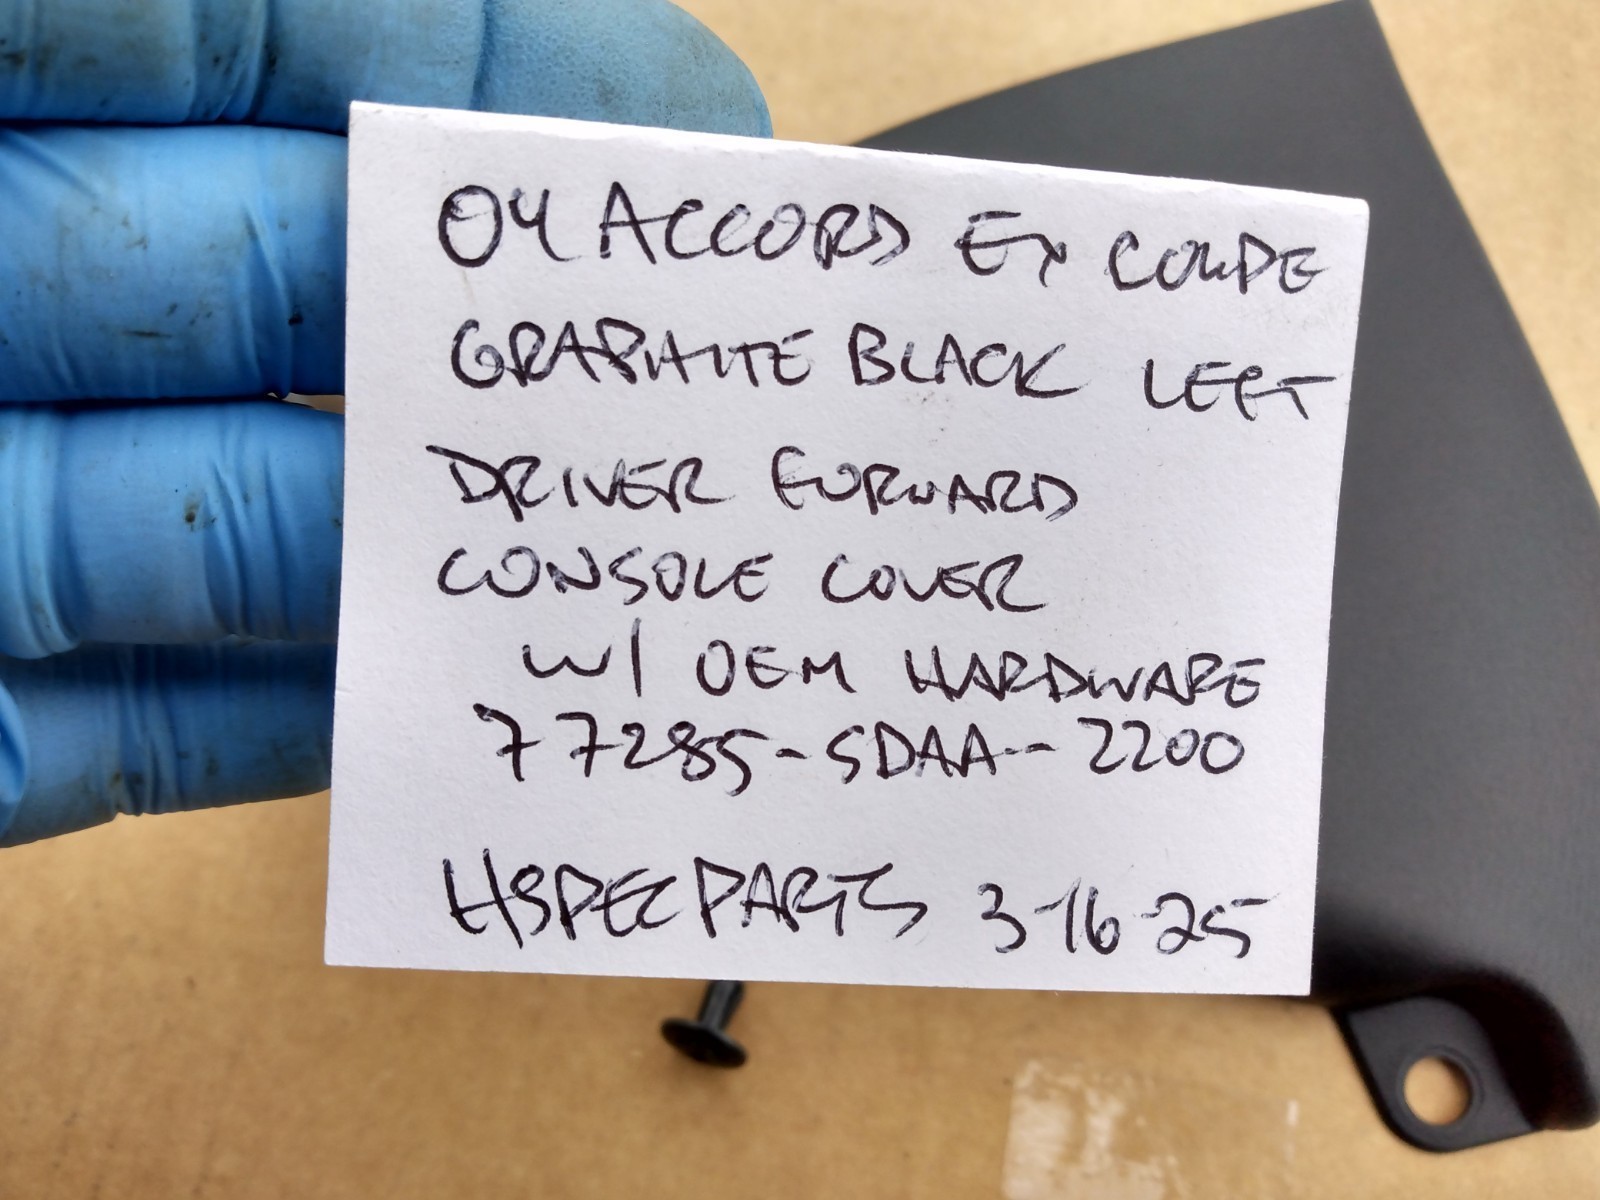 04 ACCORD EX COUPE
GRAPHITE BLACK LEFT
DRIVER FORWARD
CONSOLE COVER
W/ OEM HARDWARE
77285-SDAA-2200
HSPECPARTS 3-16-25